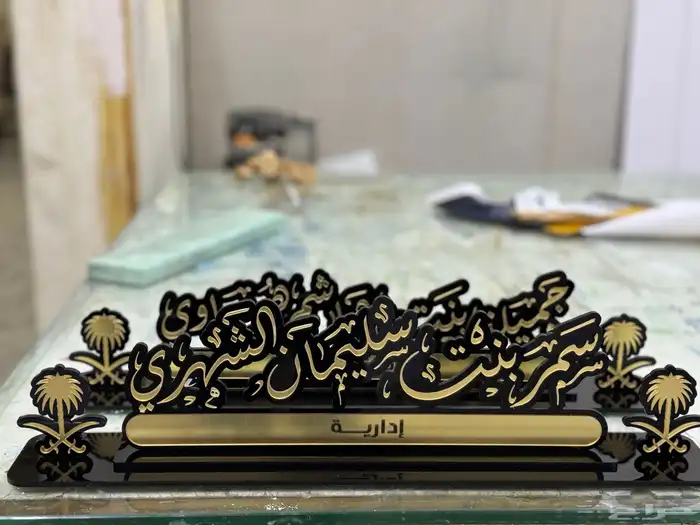 جميلة بنت
سمر بنت سليمان الشهري
إدارية